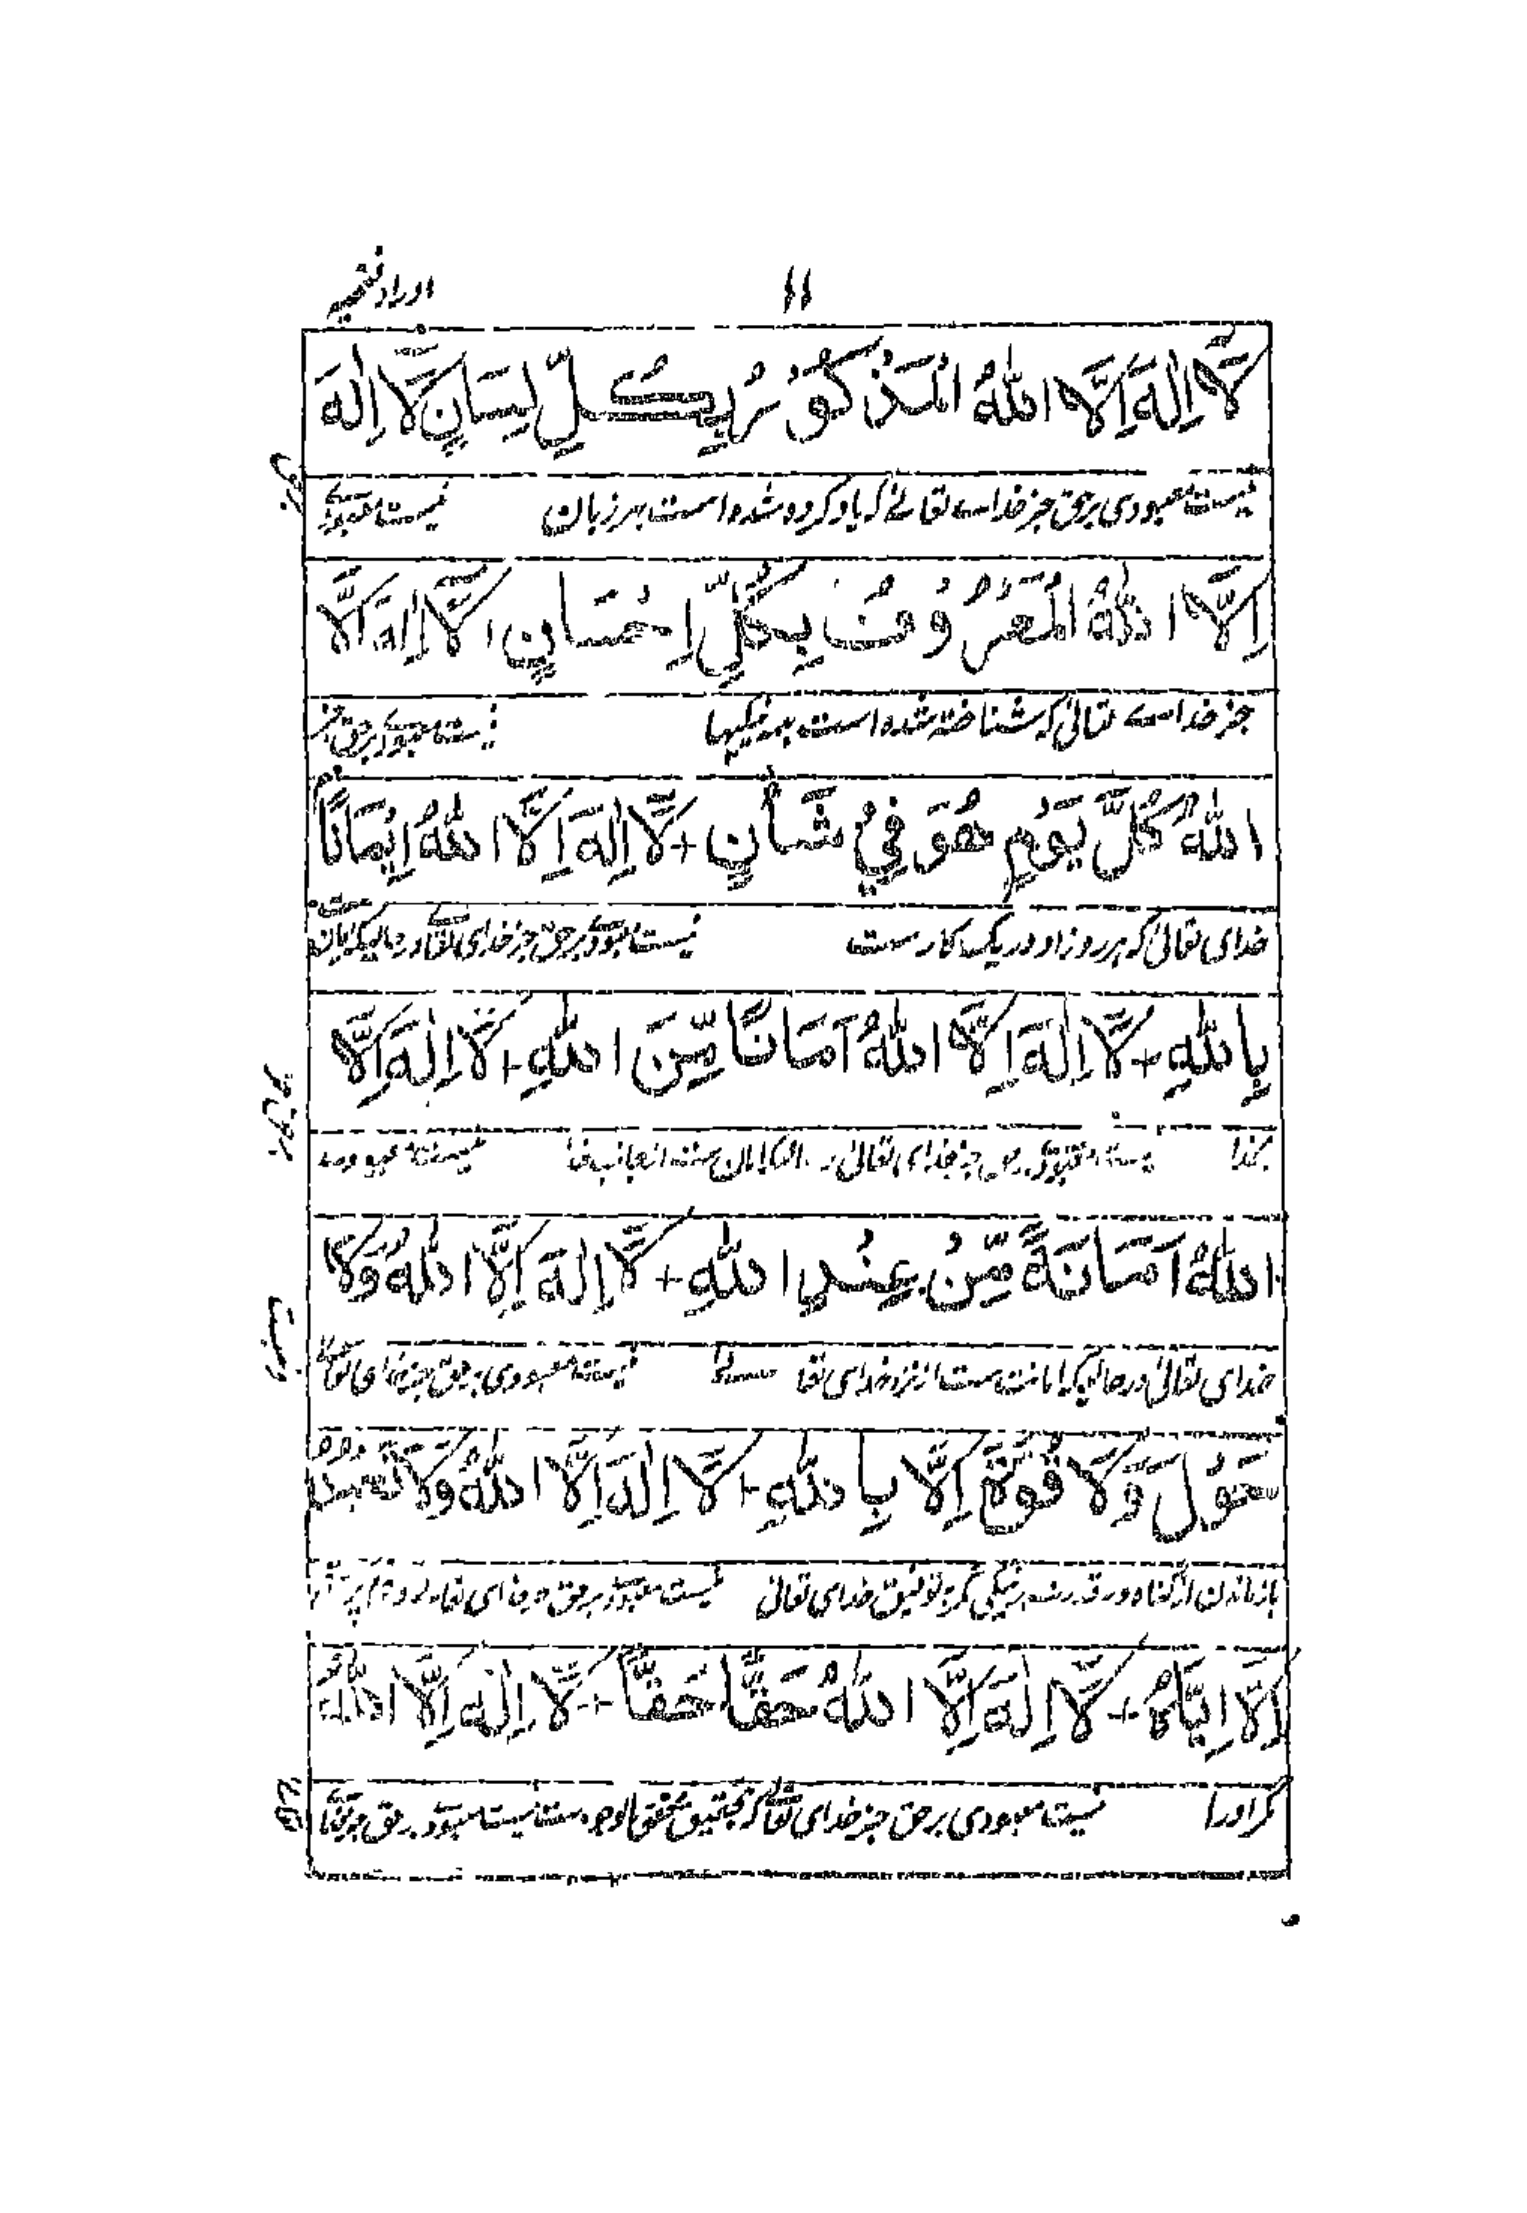 ۱۱ اوراد فتحیه
لَآ اِلٰهَ اِلَّا اللهُ الْمَذْكُوْرُ بِكُلِّ لِسَانٍ لَآ اِلٰهَ
نیست معبودی برحق جز خداے تعالے که یاد کرده شده است بهر زبان نیست معبودے
برحق
اِلَّا اللهُ الْمَعْرُوْفُ بِكُلِّ اِحْسَانٍ لَآ اِلٰهَ اِلَّا
جز خداے تعالیٰ که شناخته شده است بهمه نیکیها نیست معبودے برحق جز
اللهُ كُلَّ يَوْمٍ هُوَ فِيْ شَأْنٍ + لَآ اِلٰهَ اِلَّا اللهُ اِيْمَانًا
خدای تعالیٰ که هر روز او در یک کارست نیست معبودے برحق جز خدای تعالے در حالیکه ایمان ست
بِاللهِ + لَآ اِلٰهَ اِلَّا اللهُ اَمَانًا مِّنَ اللهِ + لَآ اِلٰهَ اِلَّا
بخدا جز خدای تعالیٰ نیست معبودے
برحق جز
اللهُ اَمَانَةً مِّنْ عِنْدِ اللهِ + لَآ اِلٰهَ اِلَّا اللهُ وَلَا
خدای تعالیٰ در حالیکه امانت ست از نزد خدای تعالے نیست معبودی برحق جز خدای تعالے
و نیست
حَوْلَ وَلَا قُوَّةَ اِلَّا بِاللهِ + لَآ اِلٰهَ اِلَّا اللهُ وَلَا نَعْبُدُ
باز ماندن از گناه و نه قدرت بر نیکی مگر بتوفیق خدای تعالیٰ نیست معبودے برحق جز خدای تعالے و
اِلَّا اِيَّاهُ + لَآ اِلٰهَ اِلَّا اللهُ حَقًّا حَقًّا + لَآ اِلٰهَ اِلَّا اللهُ
مگر اورا نیست معبودی برحق جز خدای تعالے که بتحقیق محقق الوجودست نیست معبودے برحق جز